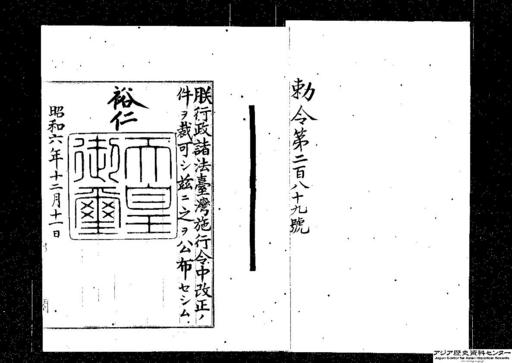 勅令第二百八十九號
朕行政諸法臺灣施行令中改正ノ
件ヲ裁可シ茲ニ之ヲ公布セシム
裕仁
天皇御璽
昭和六年十二月十一日
アジア歴史資料センター
Japan Center for Asian Historical Records